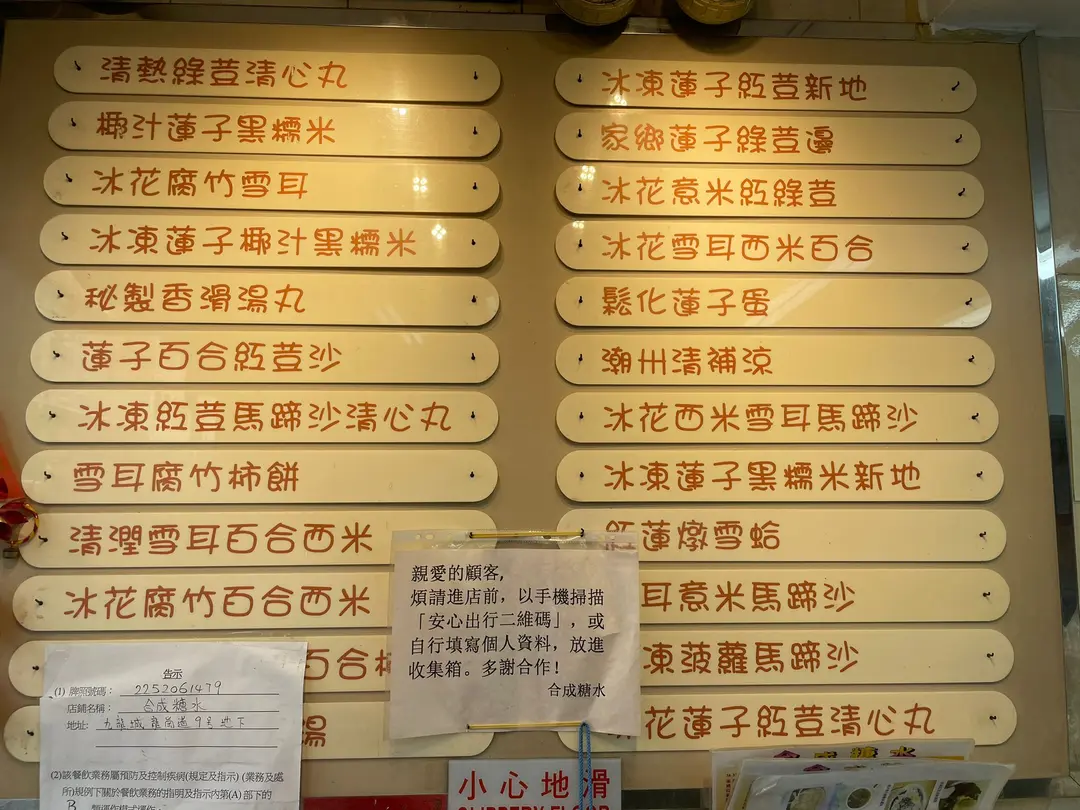 清熱綠荳清心丸
椰汁蓮子黑糯米
冰花腐竹雪耳
冰凍蓮子椰汁黑糯米
秘製香滑湯丸
蓮子百合紅荳沙
冰凍紅荳馬蹄沙清心丸
雪耳腐竹柿餅
清潤雪耳百合西米
冰花腐竹百合西米
百合
湯
冰凍蓮子紅荳新地
家鄉蓮子綠荳邊
冰花意米紅綠荳
冰花雪耳西米百合
鬆化蓮子蛋
潮州清補涼
冰花西米雪耳馬蹄沙
冰凍蓮子黑糯米新地
紅蓮燉雪蛤
耳意米馬蹄沙
凍菠蘿馬蹄沙
花蓮子紅荳清心丸
親愛的顧客,
煩請進店前，以手機掃描
「安心出行二維碼」，或
自行填寫個人資料，放進
收集箱。多謝合作!
合成糖水
告示
(1) 牌照號碼： 2252061479
店鋪名稱： 合成糖水
地址: 九龍城龍崗道9号地下
(2)該餐飲業務屬預防及控制疾病(規定及指示) (業務及處
所)規例下關於餐飲業務的指明及指示内第(A) 部下的
B 類運作模式運作：
小心地滑
SLIPPERY FLOOR
合成糖水